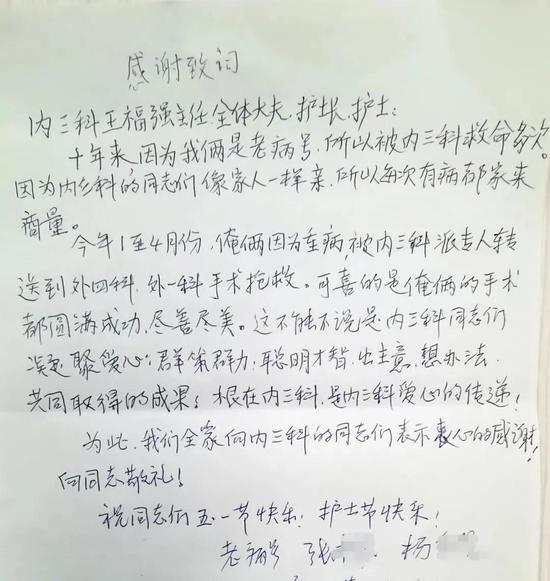 感谢致词
内三科王福强主任全体大夫、护士长、护士:
十年来因为我俩是老病号,所以被内三科救命多次。
因为内三科的同志们像家人一样亲,所以每次有病都家来
商量。
今年1至4月份,俺俩因为重病,被内三科派专人转
送到外四科、外一科手术抢救。可喜的是俺俩的手术
都圆满成功,尽善尽美。这不能不说是内三科同志们
凝聚爱心,群策群力,聪明才智,出主意,想办法,
共同取得的成果!根在内三科,是内三科爱心的传递!
为此,我们全家向内三科的同志们表示衷心的感谢!
向同志敬礼!
祝同志们五一节快乐!护士节快乐!
老病号 张 杨